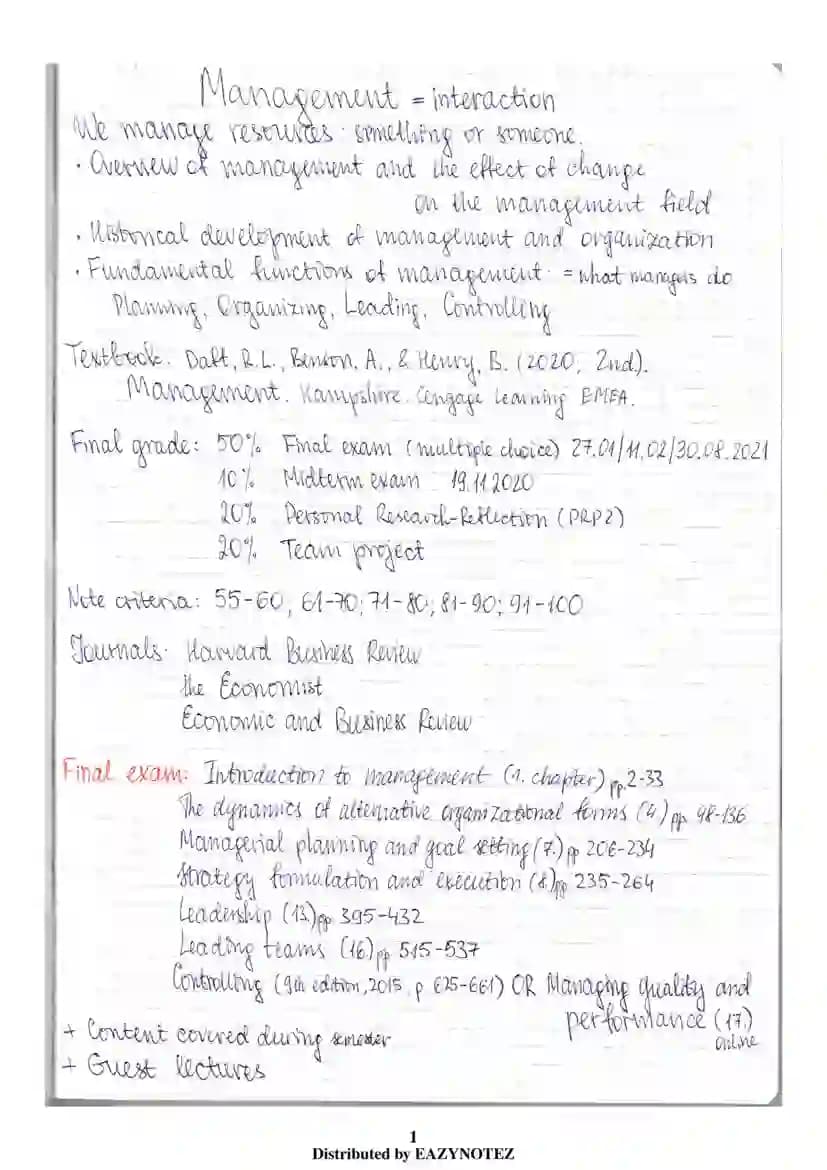 Management = interaction
We manage resources: something or someone.
• Overview of management and the effect of change
on the management field
• Historical development of management and organization
• Fundamental functions of management: = what managers do
Planning, Organizing, Leading, Controlling
Textbook: Daft, R.L., Benson, A., & Henry, B. (2020, 2nd).
Management. Hampshire. Cengage Learning EMEA.
Final grade: 50% Final exam (multiple choice) 27.01/11.02/30.08.2021
10% Midterm exam 19.11.2020
20% Personal Research-Reflection (PRP2)
20% Team project
Note criteria: 55-60; 61-70; 71-80; 81-90; 91-100
Journals: Harvard Business Review
the Economist
Economic and Business Review
Final exam: Introduction to management (1. chapter) pp. 2-33
The dynamics of alternative organizational forms (4.) pp. 98-136
Managerial planning and goal setting (7.) pp 206-234
Strategy formulation and execution (8.) pp 235-264
Leadership (13.) pp. 395-432
Leading teams (16.) pp. 515-537
Controlling (9th edition, 2015, p 625-661) OR Managing quality and
performance (17.)
online
+ Content covered during semester
+ Guest lectures
1
Distributed by EAZYNOTEZ